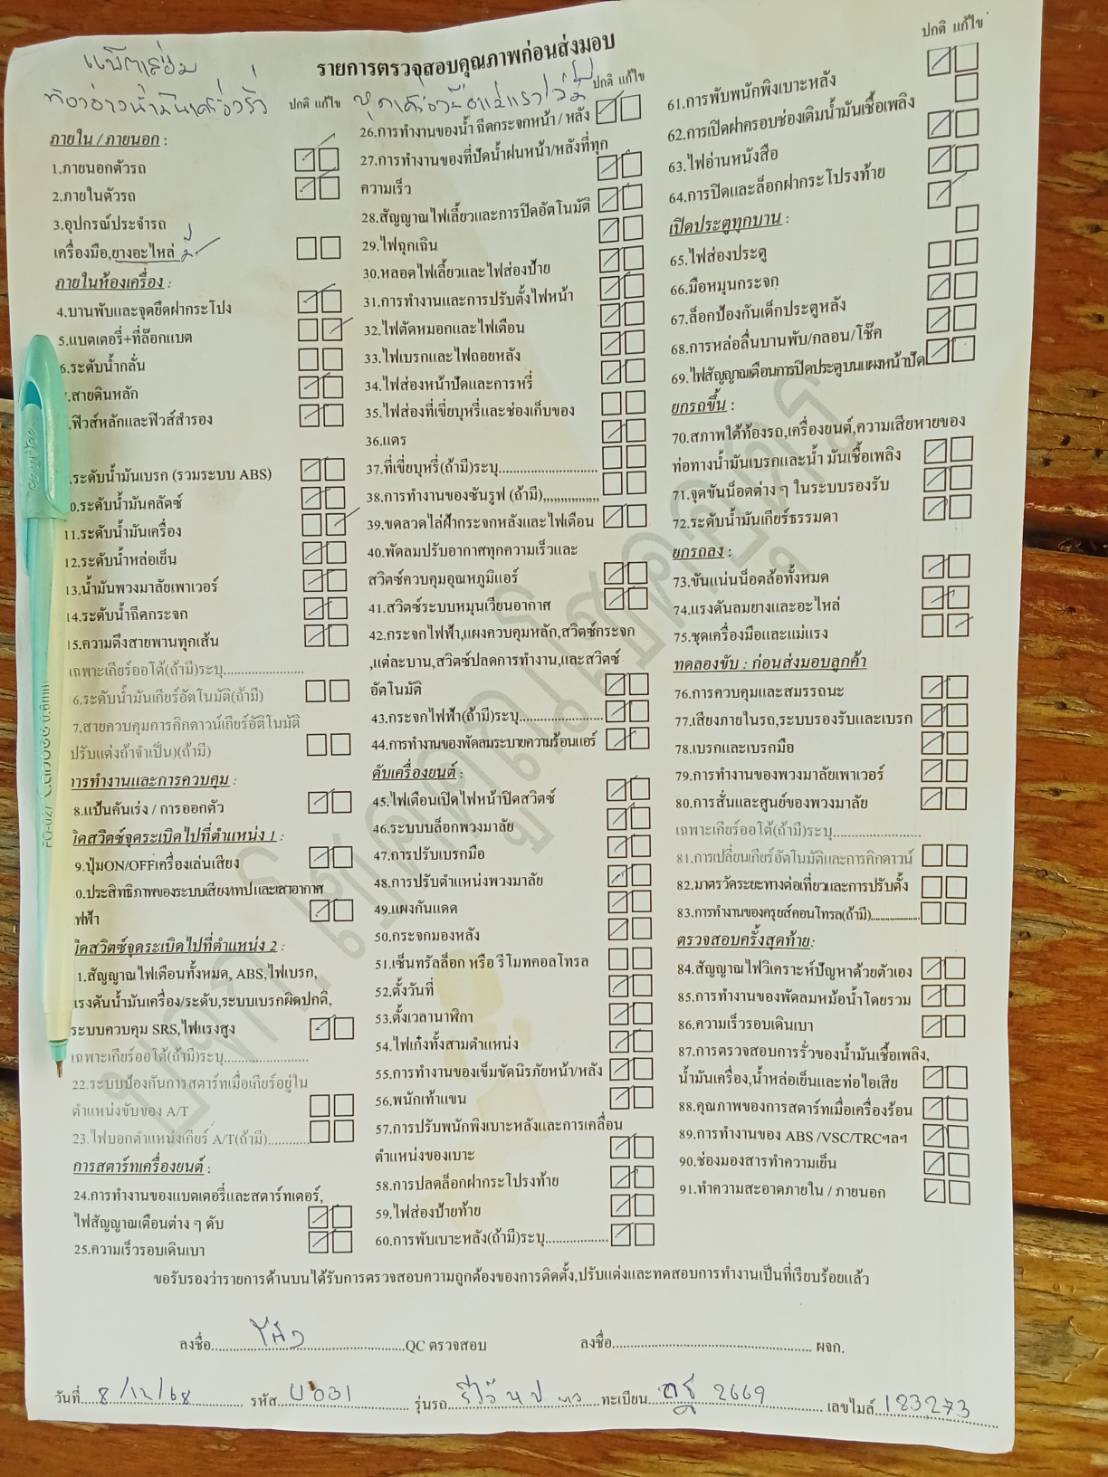 แบตเสื่อม
รายการตรวจสอบคุณภาพก่อนส่งมอบ
ปกติ แก้ไข
ภายใน / ภายนอก :
1.ภายนอกตัวรถ
2.ภายในตัวรถ
3.อุปกรณ์ประจำรถ
เครื่องมือ,ยางอะไหล่ มี
ภายในห้องเครื่อง :
4.บานพับและจุดยึดฝากระโปง
5.แบตเตอรี่+ที่ล๊อกแบต
6.ระดับน้ำกลั่น
.สายดินหลัก
.ฟิวส์หลักและฟิวส์สำรอง
.ระดับน้ำมันเบรก (รวมระบบ ABS)
0.ระดับน้ำมันคลัตช์
11.ระดับน้ำมันเครื่อง
12.ระดับน้ำหล่อเย็น
13.น้ำมันพวงมาลัยเพาเวอร์
14.ระดับน้ำฉีดกระจก
15.ความตึงสายพานทุกเส้น
เฉพาะเกียร์ออโต้(ถ้ามี)ระบุ....................
6.ระดับน้ำมันเกียร์อัตโนมัติ(ถ้ามี)
7.สายควบคุมการคิกดาวน์เกียร์อัติโนมัติ
ปรับแต่งถ้าจำเป็น)(ถ้ามี)
การทำงานและการควบคุม :
8.แป้นคันเร่ง / การออกตัว
ไดสวิตช์จุดระเบิดไปที่ตำแหน่ง 1 :
9.ปุ่มON/OFFเครื่องเล่นเสียง
.0.ประสิทธิภาพของระบบเสียงเทปและเสาอากาศ
ฟฟ้า
ไดสวิตซ์จุดระเบิดไปที่ตำแหน่ง 2 :
1.สัญญาณไฟเตือนทั้งหมด, ABS,ไฟเบรก,
แรงดันน้ำมันเครื่อง/ระดับ,ระบบเบรกผิดปกติ,
ระบบควบคุม SRS,ไฟแรงสูง
เฉพาะเกียร์ออโต้(ถ้ามี)ระบุ....................
22.ระบบป้องกันการสตาร์ทเมื่อเกียร์อยู่ใน
ตำแหน่งขับของ A/T
23.ไฟบอกตำแหน่งเกียร์ A/T(ถ้ามี)..........
การสตาร์ทเครื่องยนต์ :
24.การทำงานของแบตเตอรี่และสตาร์ทเตอร์,
ไฟสัญญาณเตือนต่าง ๆ ดับ
25.ความเร็วรอบเดินเบา
ปกติ แก้ไข
26.การทำงานของน้ำ ฉีดกระจกหน้า / หลัง
27.การทำงานของที่ปัดน้ำฝนหน้า/หลังที่ทุก
ความเร็ว
28.สัญญาณไฟเลี้ยวและการปิดอัตโนมัติ
29.ไฟฉุกเฉิน
30.หลอดไฟเลี้ยวและไฟส่องป้าย
31.การทำงานและการปรับตั้งไฟหน้า
32.ไฟตัดหมอกและไฟเตือน
33.ไฟเบรกและไฟถอยหลัง
34.ไฟส่องหน้าปัดและการหรี่
35.ไฟส่องที่เขี่ยบุหรี่และช่องเก็บของ
36.แตร
37.ที่เขี่ยบุหรี่(ถ้ามี)ระบุ..........................
38.การทำงานของซันรูฟ (ถ้ามี)...............
39.ขดลวดไล่ฝ้ากระจกหลังและไฟเตือน
40.พัดลมปรับอากาศทุกความเร็วและ
สวิตช์ควบคุมอุณหภูมิแอร์
41.สวิตช์ระบบหมุนเวียนอากาศ
42.กระจกไฟฟ้า,แผงควบคุมหลัก,สวิตช์กระจก
,แต่ละบาน,สวิตช์ปลดการทำงาน,และสวิตช์
อัตโนมัติ
43.กระจกไฟฟ้า(ถ้ามี)ระบุ......................
44.การทำงานของพัดลมระบายความร้อนแอร์
ดับเครื่องยนต์ :
45.ไฟเตือนเปิดไฟหน้าปิดสวิตช์
46.ระบบบล็อกพวงมาลัย
47.การปรับเบรกมือ
48.การปรับตำแหน่งพวงมาลัย
49.แผงกันแดด
50.กระจกมองหลัง
51.เซ็นทรัลล็อก หรือ รีโมทคอลโทรล
52.ตั้งวันที่
53.ตั้งเวลานาฬิกา
54.ไฟเก๋งทั้งสามตำแหน่ง
55.การทำงานของเข็มขัดนิรภัยหน้า/หลัง
56.พนักเท้าแขน
57.การปรับพนักพิงเบาะหลังและการเคลื่อน
ตำแหน่งของเบาะ
58.การปลดล็อกฝากระโปรงท้าย
59.ไฟส่องป้ายท้าย
60.การพับเบาะหลัง(ถ้ามี)ระบุ.................
ปกติ แก้ไข
61.การพับพนักพิงเบาะหลัง
62.การเปิดฝาครอบช่องเติมน้ำมันเชื้อเพลิง
63.ไฟอ่านหนังสือ
64.การปิดและล็อกฝากระโปรงท้าย
เปิดประตูทุกบาน :
65.ไฟส่องประตู
66.มือหมุนกระจก
67.ล็อกป้องกันเด็กประตูหลัง
68.การหล่อลื่นบานพับ/กลอน/โช๊ค
69.ไฟสัญญาณเตือนการปิดประตูบนแผงหน้าปัด
ยกรถขึ้น :
70.สภาพใต้ท้องรถ,เครื่องยนต์,ความเสียหายของ
ท่อทางน้ำมันเบรกและน้ำ มันเชื้อเพลิง
71.จุดขันน็อตต่าง ๆ ในระบบรองรับ
72.ระดับน้ำมันเกียร์ธรรมดา
ยกรถลง :
73.ขันแน่นน็อตล้อทั้งหมด
74.แรงดันลมยางและอะไหล่
75.ชุดเครื่องมือและแม่แรง
ทดลองขับ : ก่อนส่งมอบลูกค้า
76.การควบคุมและสมรรถนะ
77.เสียงภายในรถ,ระบบรองรับและเบรก
78.เบรกและเบรกมือ
79.การทำงานของพวงมาลัยเพาเวอร์
80.การสั่นและศูนย์ของพวงมาลัย
เฉพาะเกียร์ออโต้(ถ้ามี)ระบุ......................
81.การเปลี่ยนเกียร์อัตโนมัติและการคิกดาวน์
82.มาตรวัดระยะทางต่อเที่ยวและการปรับตั้ง
83.การทำงานของครุยส์คอนโทรล(ถ้ามี)..................
ตรวจสอบครั้งสุดท้าย:
84.สัญญาณไฟวิเคราะห์ปัญหาด้วยตัวเอง
85.การทำงานของพัดลมหม้อน้ำโดยรวม
86.ความเร็วรอบเดินเบา
87.การตรวจสอบการรั่วของน้ำมันเชื้อเพลิง,
น้ำมันเครื่อง,น้ำหล่อเย็นและท่อไอเสีย
88.คุณภาพของการสตาร์ทเมื่อเครื่องร้อน
89.การทำงานของ ABS /VSC/TRCฯลฯ
90.ช่องมองสารทำความเย็น
91.ทำความสะอาดภายใน / ภายนอก
ขอรับรองว่ารายการด้านบนได้รับการตรวจสอบความถูกต้องของการติดตั้ง,ปรับแต่งและทดสอบการทำงานเป็นที่เรียบร้อยแล้ว
ลงชื่อ..................QC ตรวจสอบ ลงชื่อ..................ผจก.
วันที่ 8/12/68 รหัส U031 รุ่นรถ ทะเบียน 2669 เลขไมล์ 183273